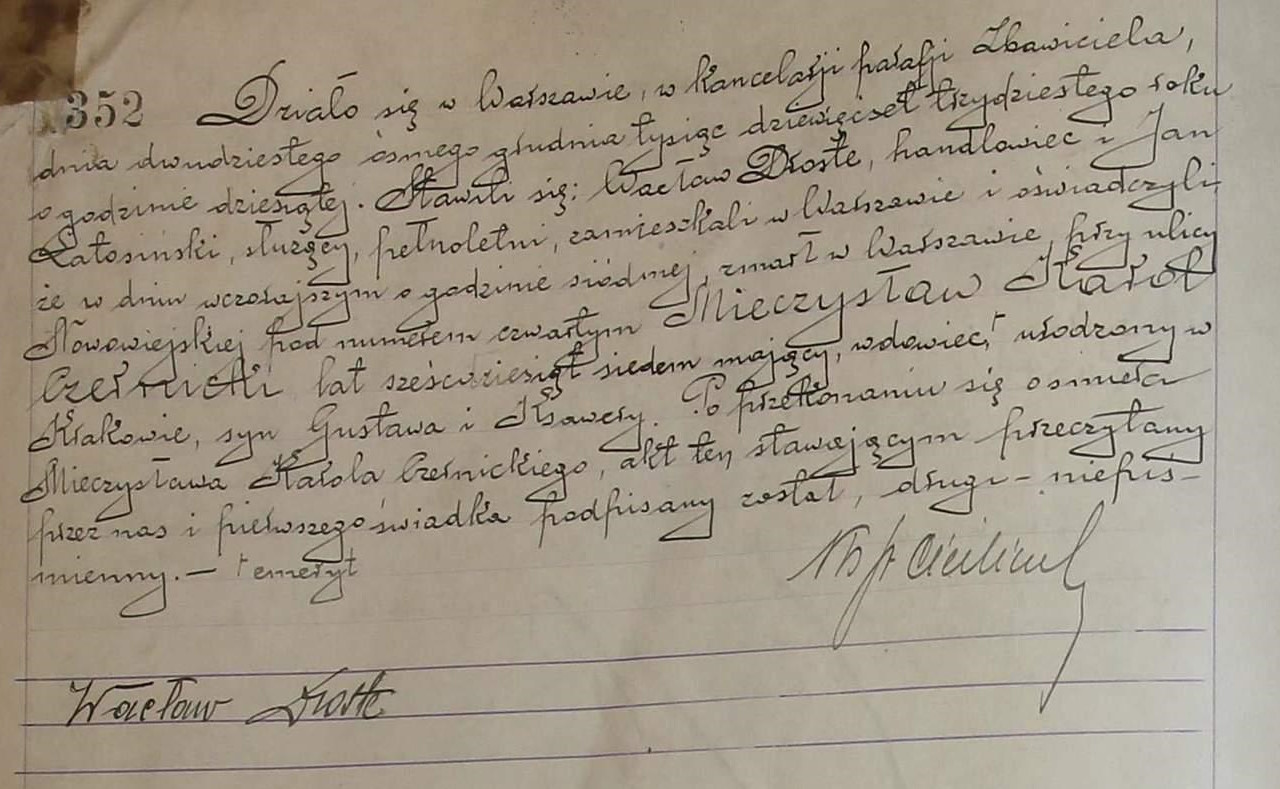 352 Działo się w Warszawie, w kancelarji parafji Zbawiciela,
dnia dwudziestego ósmego grudnia tysiąc dziewięćset trzydziestego roku
o godzinie dziesiątej. Stawili się: Wacław Droste, handlowiec i Jan
Latosiński, służący, pełnoletni, zamieszkali w Warszawie i oświadczyli,
że w dniu wczorajszym o godzinie siódmej, zmarł w Warszawie przy ulicy
Nowowiejskiej pod numerem czwartym Mieczysław Karol
Czernicki lat sześćdziesiąt siedem mający, wdowiec, urodzony w
Krakowie, syn Gustawa i Ksawery. Po przekonaniu się o śmierci
Mieczysława Karola Czernickiego, akt ten stawającym przeczytany
przez nas i pierwszego świadka podpisany został, drugi - niepiś-
mienny. — emeryt
Wacław Droste